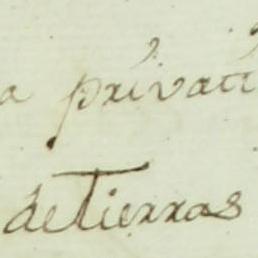 a privati
de Tierras